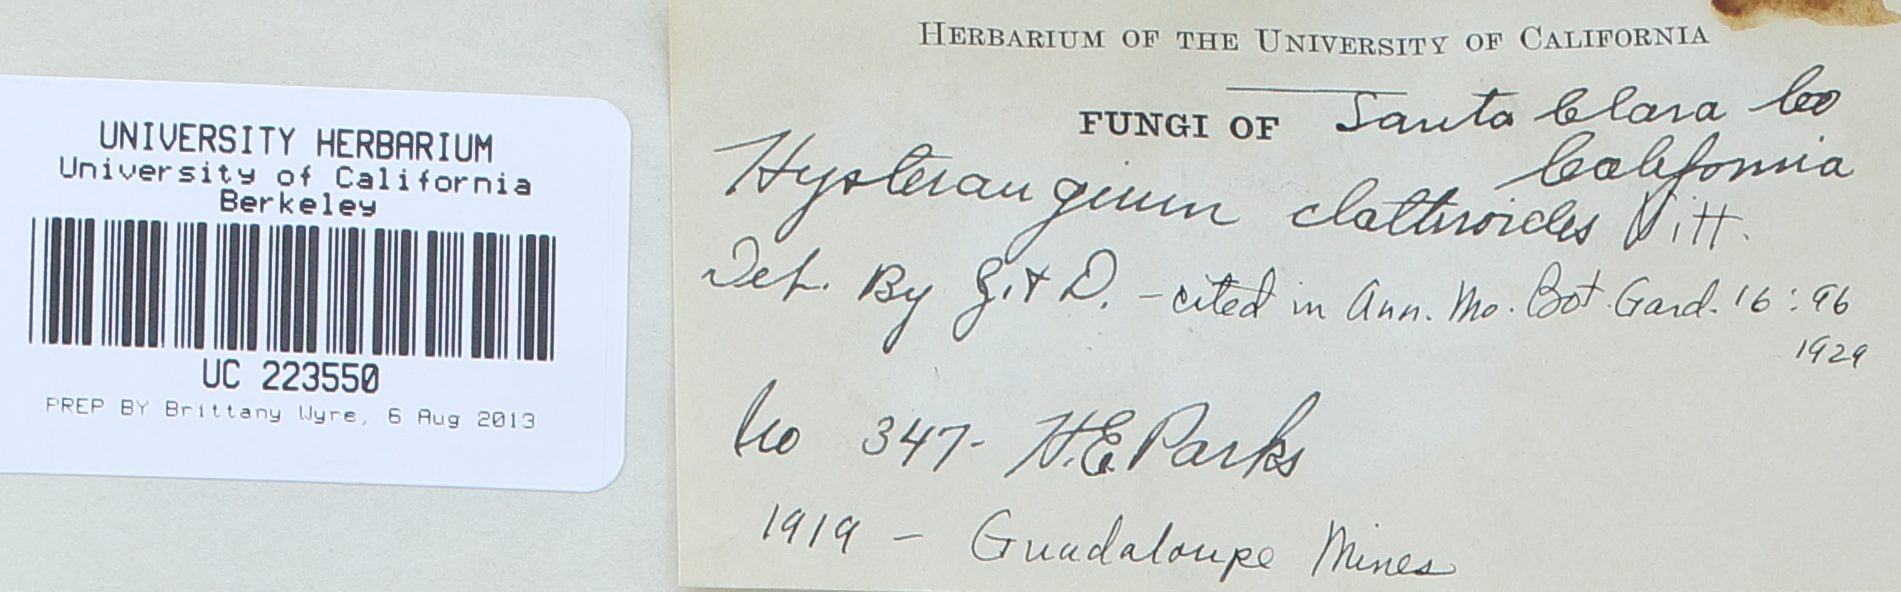 UNIVERSITY HERBARIUM
University of California
Berkeley
UC 223550
PREP BY Brittany Wyre, 6 Aug 2013
HERBARIUM OF THE UNIVERSITY OF CALIFORNIA
FUNGI OF Santa Clara Co
California
Hysterangium clathroides Vitt.
Det. By Z. & D. - cited in Ann. Mo. Bot. Gard. 16:96
1929
Co 347- H.E. Parks
1919 - Guadaloupe Mines